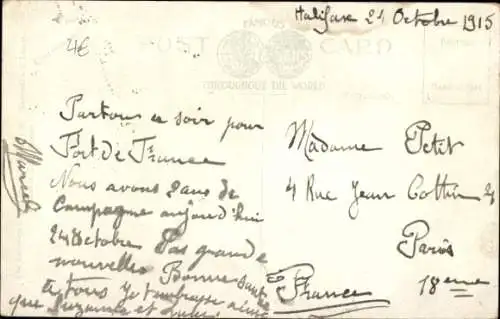 Halifax 21 Octobre 1915
4€
FAMOUS
POST CARD
THROUGHOUT THE WORLD
Partons ce soir pour
Fort de France
Nous avons 2 ans de
Campagne aujourd'hui
24 Octobre Pas grande
nouvelles Bonne santé
à tous Je t'embrasse ainsi
que Suzanne et
Marcel
Madame Petit
4 Rue Jean Cottin 4
Paris
18eme
France